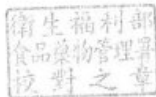 衛生福利部
食品藥物管理署
核對之章